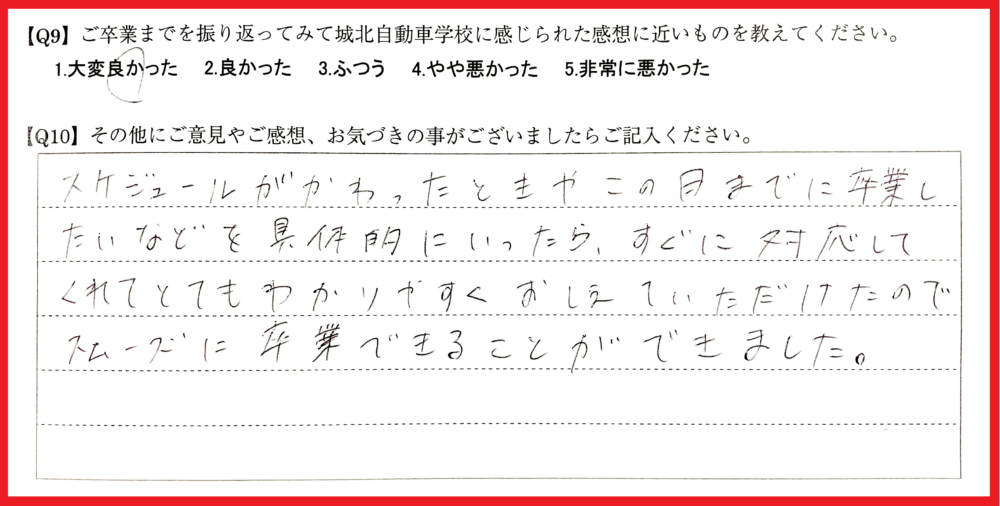 【Q9】ご卒業までを振り返ってみて城北自動車学校に感じられた感想に近いものを教えてください。
1.大変良かった 2.良かった 3.ふつう 4.やや悪かった 5.非常に悪かった
【Q10】その他にご意見やご感想、お気づきの事がございましたらご記入ください。
スケジュールがかわったときやこの日までに卒業し
たいなどを具体的にいったら、すぐに対応して
くれてとてもわかりやすくおしえていただけたので
スムーズに卒業できることができました。